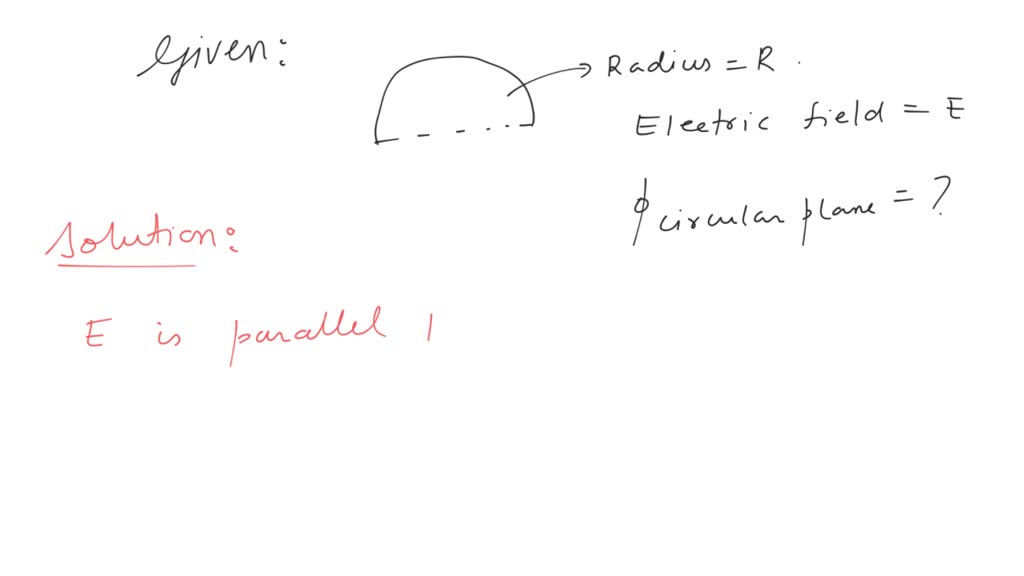 Given:
Radius = R.
Electric field = E
ϕ circular plane = ?
Solution:
E is parallel